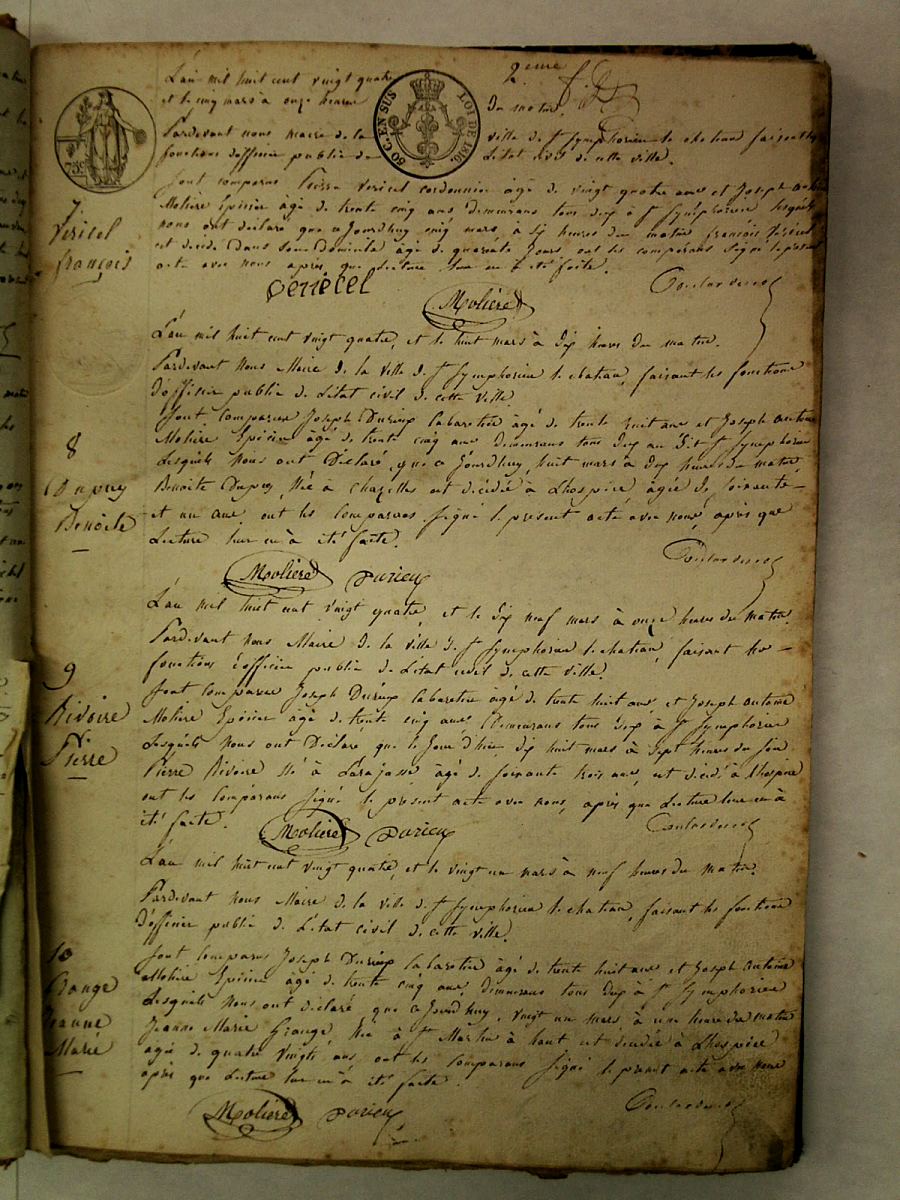 2eme
L'an mil huit cent vingt quatre
et le cinq mars à onze heures du matin
75c
50 C. EN SUS LOI DE 1816.
Pardevant nous maire de la ville de St Symphorien le chateau faisant les
fonctions d'officier public de L'état civil de cette ville.
7
Vericel
françois
Sont comparus Pierre Vericel cordonnier âgé de vingt quatre ans et Joseph antoine
Molière Epicier âgé de trente cinq ans, demeurans tous deux à St Symphorien lesquels
nous ont déclaré que ce Jourdhuy cinq mars, à six heures du matin françois Vericel
est décédé dans son Domicile âgé de quarante Jours ont les comparans signé le présent
acte avec nous après que lecture leur en à été faite.
Verrecel
Molière
L'an mil huit cent vingt quatre, et le huit mars à dix heures du matin.
Pardevant Nous Maire de la ville de St Symphorien le chateau, faisant les fonctions
d'officier public de L'état civil de cette ville.
8
Dupuy
Benoite
Sont comparus Joseph Durieux Cabaretier âgé de trente huit ans et Joseph antoine
Molière Epicier âgé de trente cinq ans demeurans tous deux au dit St Symphorien
Lesquels Nous ont Déclaré, que ce Jourdhuy, huit mars à deux heures du matin,
Benoite Dupuy, Née à Chazelles est décédée à Lhospice, âgée de soixante-
et un ans, ont les Comparans signé le présent acte avec nous, après que
Lecture leur en à été faite.
Molière Durieu
L'an mil huit cent vingt quatre, et le dix neuf mars à onze heures du matin.
Pardevant nous Maire de la ville de St Symphorien le chateau, faisant les-
fonctions d'officier public de L'état civil de cette ville.
9
Rivoire
Pierre
Sont Comparus Joseph Durieux Cabaretier âgé de trente huit ans, et Joseph antoine
Molière Epicier âgé de trente cinq ans, Demeurans tous deux à St Symphorien
Lesquels Nous ont Déclaré, que le Jour d'hier dix huit mars à sept heures du soir
Pierre Rivoire Né à Larajasse âgé de soixante trois ans, est décédé à Lhospice
ont les Comparans signé le présent acte avec nous, après que Lecture leur en à
été faite.
Molière Durieu
L'an mil huit cent vingt quatre, et le vingt un mars à neuf heures du matin.
Pardevant Nous Maire de la ville de St Symphorien le chateau, faisant les fonctions
D'officier public de L'état civil de cette ville.
10
Grange
Jeanne
Marie
Sont comparus Joseph Durieux Cabaretier âgé de trente huit ans et Joseph Antoine
Molière Epicier âgé de trente cinq ans, demeurans tous deux à St Symphorien
Lesquels Nous ont déclaré que ce Jourdhuy, vingt un mars à une heure du matin
Jeanne Marie Grange, Née à St Martin à haut est décédée à Lhospice
agée de quatre vingts ans, ont les Comparans signé le présent acte avec nous
après que Lecture leur en à été faite.
Molière Durieu